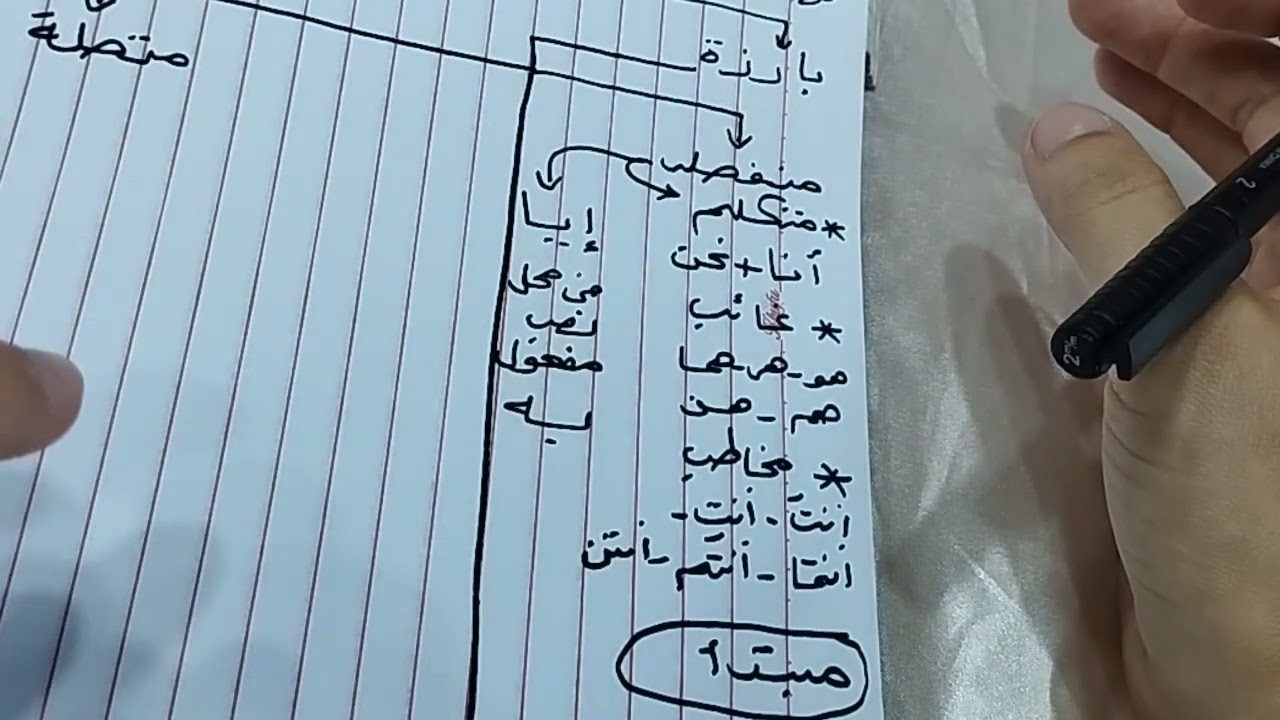 بارزة
متصلة
منفصلة
*متكلم
أنا+نحن
*غائب
هو-هي-هما
هم-هن
*مخاطب
أنتَ-أنتِ-
أنتما-أنتم-أنتن
مبتدأ
إيا
في محل
نصب
مفعول
به
2